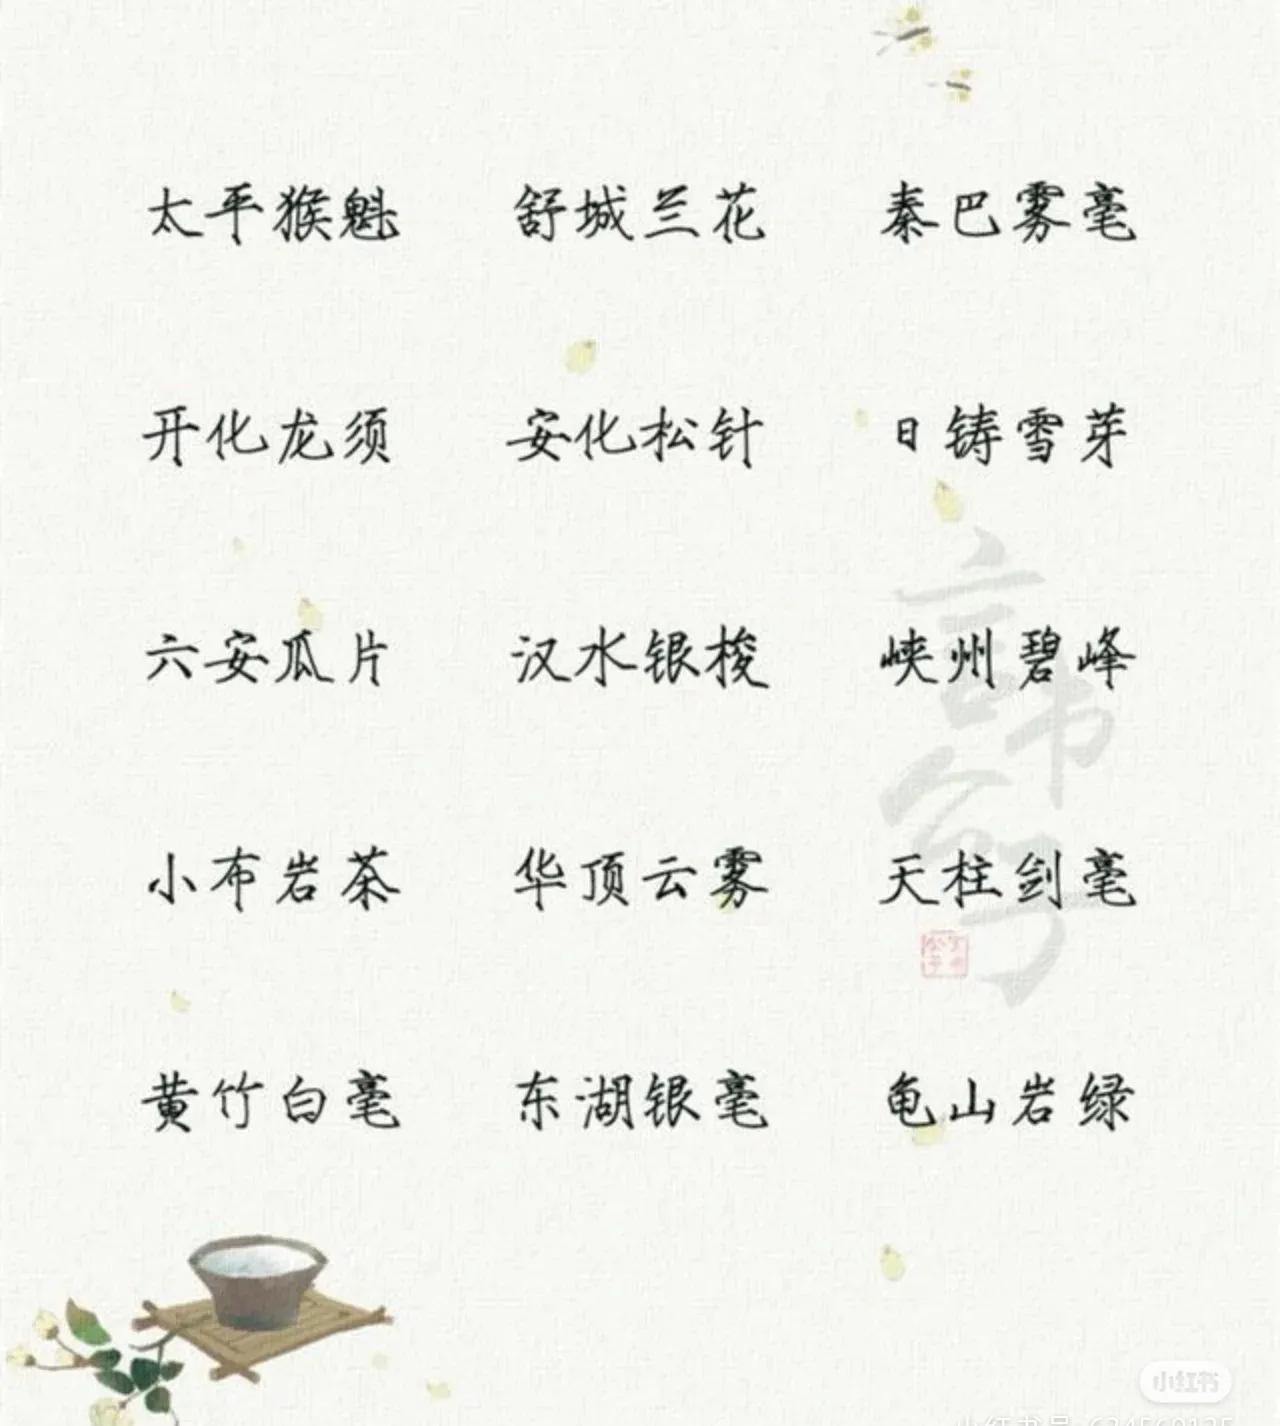 太平猴魁 舒城兰花 秦巴雾毫
开化龙须 安化松针 日铸雪芽
六安瓜片 汉水银梭 峡州碧峰
小布岩茶 华顶云雾 天柱剑毫
黄竹白毫 东湖银毫 龟山岩绿
小红书